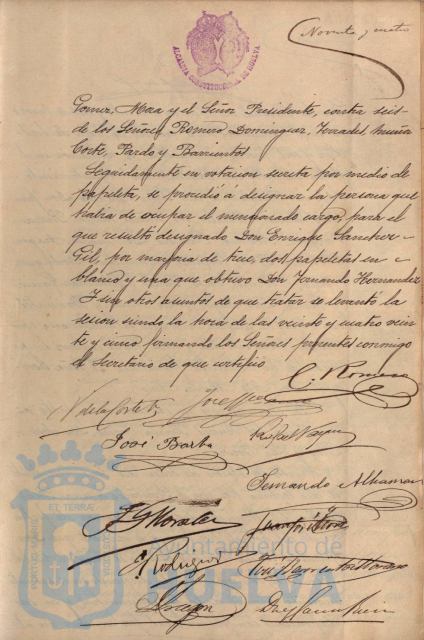 Noventa y cuatro
ALCALDIA CONSTITUCIONAL DE HUELVA
Gomez, Maza y el Señor Presidente, contra seis
de los Señores Romero Dominguez, Terrades, Muñiz
Corte, Pardo y Barrientos
Seguidamente en votacion secreta por medio de
papeleta, se procedió á designar la persona que
habia de ocupar el mencionado cargo, para el
que resultó designado Don Enrique Sanchez
Gil, por mayoria de trece, dos papeletas en
blanco y una que obtuvo Don Fernando Hernandez
Y sin otros asuntos de que tratar se levantó la
sesion siendo la hora de las veinte y cuatro vein
te y cinco firmando los Señores presentes conmigo
el Secretario de que certifico
C. Romero
V. de la Corte
José Barba Rafael
Fernando
EL TERRÆ
PORTUS MARIS
CUSTODIA
J. G. Morales
E. Rodriguez
Ayuntamiento de
HUELVA